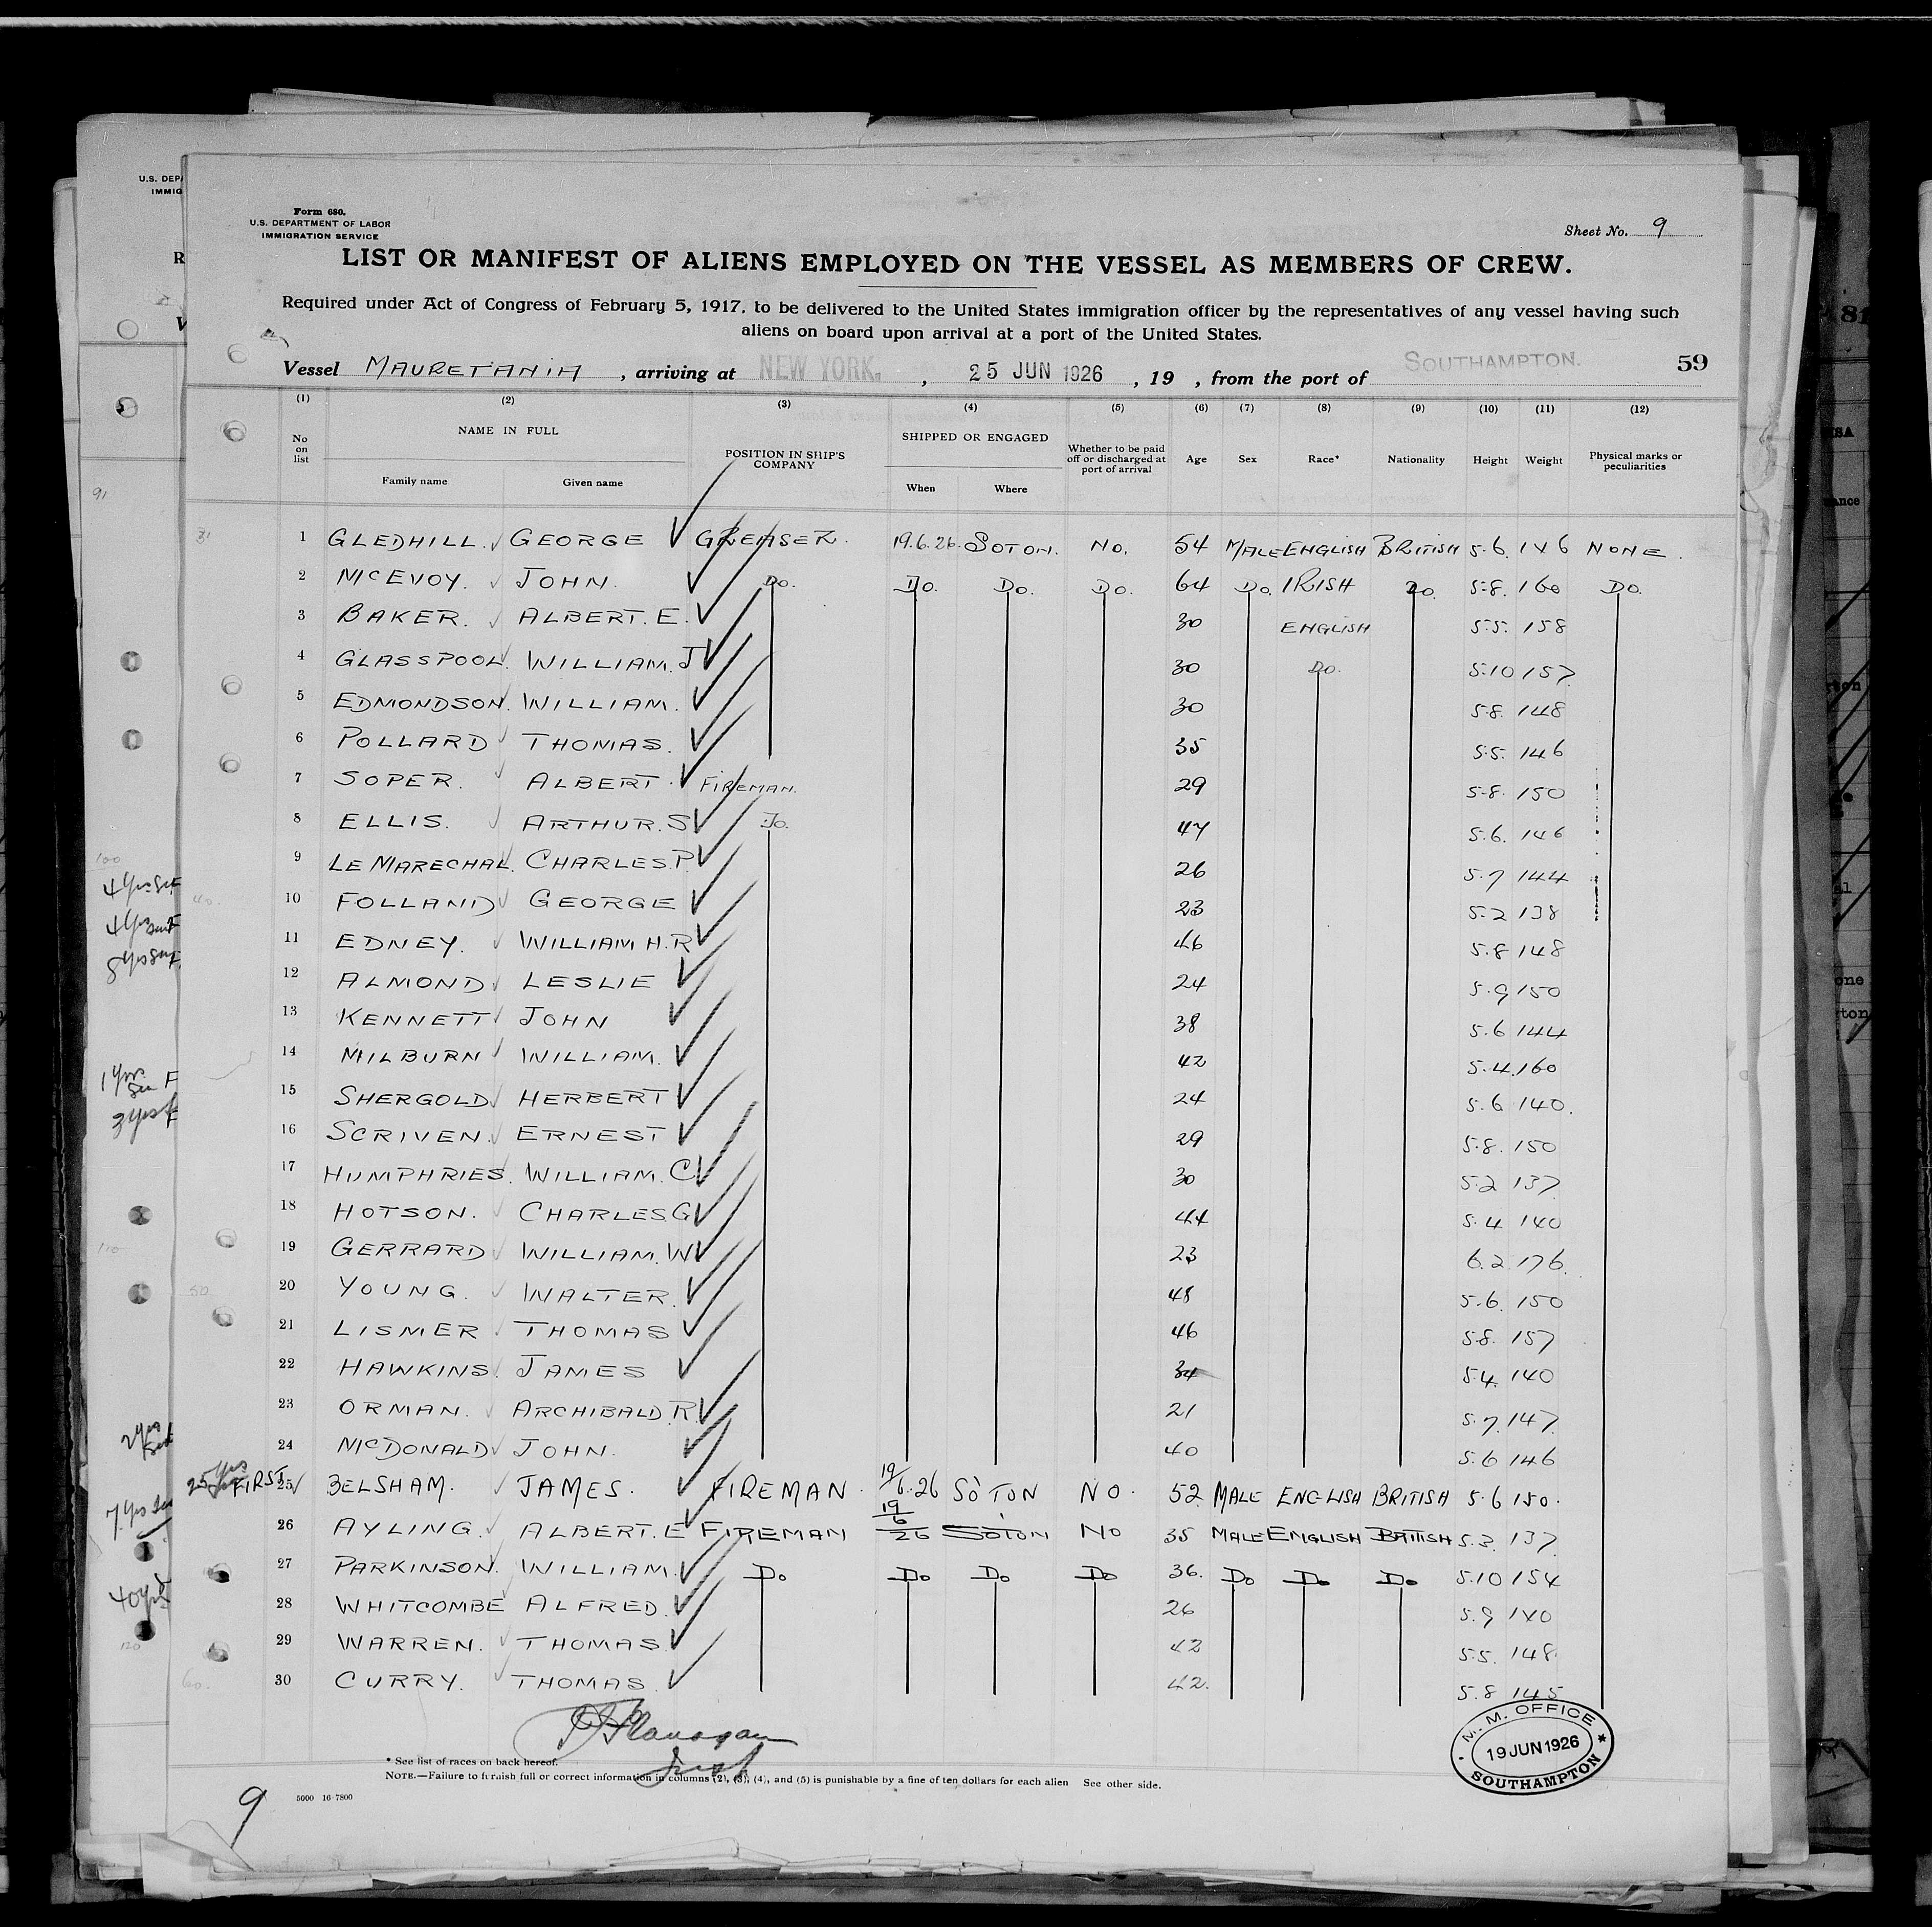 U.S. DEP
IMMIG
Form 680.
U.S. DEPARTMENT OF LABOR
IMMIGRATION SERVICE
Sheet No. 9
LIST OR MANIFEST OF ALIENS EMPLOYED ON THE VESSEL AS MEMBERS OF CREW.
Required under Act of Congress of February 5, 1917, to be delivered to the United States immigration officer by the representatives of any vessel having such
aliens on board upon arrival at a port of the United States.
Vessel MAURETANIA , arriving at NEW YORK, , 25 JUN 1926 , 19 , from the port of SOUTHAMPTON. 59
(1) (2) (3) (4) (5) (6) (7) (8) (9) (10) (11) (12)
No on list NAME IN FULL Family name Given name POSITION IN SHIP'S COMPANY SHIPPED OR ENGAGED When Where Whether to be paid off or discharged at port of arrival Age Sex Race* Nationality Height Weight Physical marks or peculiarities
1 GLEDHILL. GEORGE GREASER. 19.6.26. SOTON. NO. 54 MALE ENGLISH BRITISH 5.6. 146 NONE.
2 MCEVOY. JOHN. DO. DO. DO. DO. 64 DO. IRISH DO. 5.8. 160 DO.
3 BAKER. ALBERT. E. 30 ENGLISH 5.5. 158
4 GLASSPOOL. WILLIAM. J 30 DO. 5.10 157
5 EDMONDSON. WILLIAM. 30 5.8. 148
6 POLLARD THOMAS. 35 5.5. 146
7 SOPER. ALBERT. FIREMAN. 29 5.8. 150
8 ELLIS. ARTHUR. S DO. 47 5.6. 146
9 LE MARECHAL. CHARLES. P. 26 5.7 144
10 FOLLAND GEORGE 23 5.2 138
11 EDNEY. WILLIAM H. R 46 5.8 148
12 ALMOND LESLIE 24 5.9 150
13 KENNETT JOHN 38 5.6 144
14 MILBURN WILLIAM. 42 5.4. 160
15 SHERGOLD HERBERT 24 5.6 140.
16 SCRIVEN. ERNEST 29 5.8. 150
17 HUMPHRIES. WILLIAM. C 30 5.2 137
18 HOTSON. CHARLES. G 44 5.4 140
19 GERRARD WILLIAM. W 23 6.2 176.
20 YOUNG. WALTER. 48 5.6. 150
21 LISMER THOMAS 46 5.8. 157
22 HAWKINS. JAMES 34 5.4. 140
23 ORMAN. ARCHIBALD. R. 21 5.7. 147.
24 MCDONALD JOHN. 40 5.6 146
25 yrs FIRST 25 BELSHAM. JAMES. FIREMAN. 19/6.26 SO'TON NO. 52 MALE ENGLISH BRITISH 5.6 150.
26 AYLING. ALBERT. E FIREMAN 19/6/26 SOTON NO 35 MALE ENGLISH BRITISH 5.3. 137
27 PARKINSON. WILLIAM. DO DO DO DO 36. DO DO DO 5.10 154
28 WHITCOMBE ALFRED. 26 5.9 140
29 WARREN. THOMAS. 42 5.5. 148
30 CURRY. THOMAS. 42. 5.8 145
Flanagan
M. M. OFFICE
19 JUN 1926
SOUTHAMPTON
* See list of races on back hereof.
NOTE.—Failure to furnish full or correct information in columns (2), (3), (4), and (5) is punishable by a fine of ten dollars for each alien See other side.
5000 16-7800
9